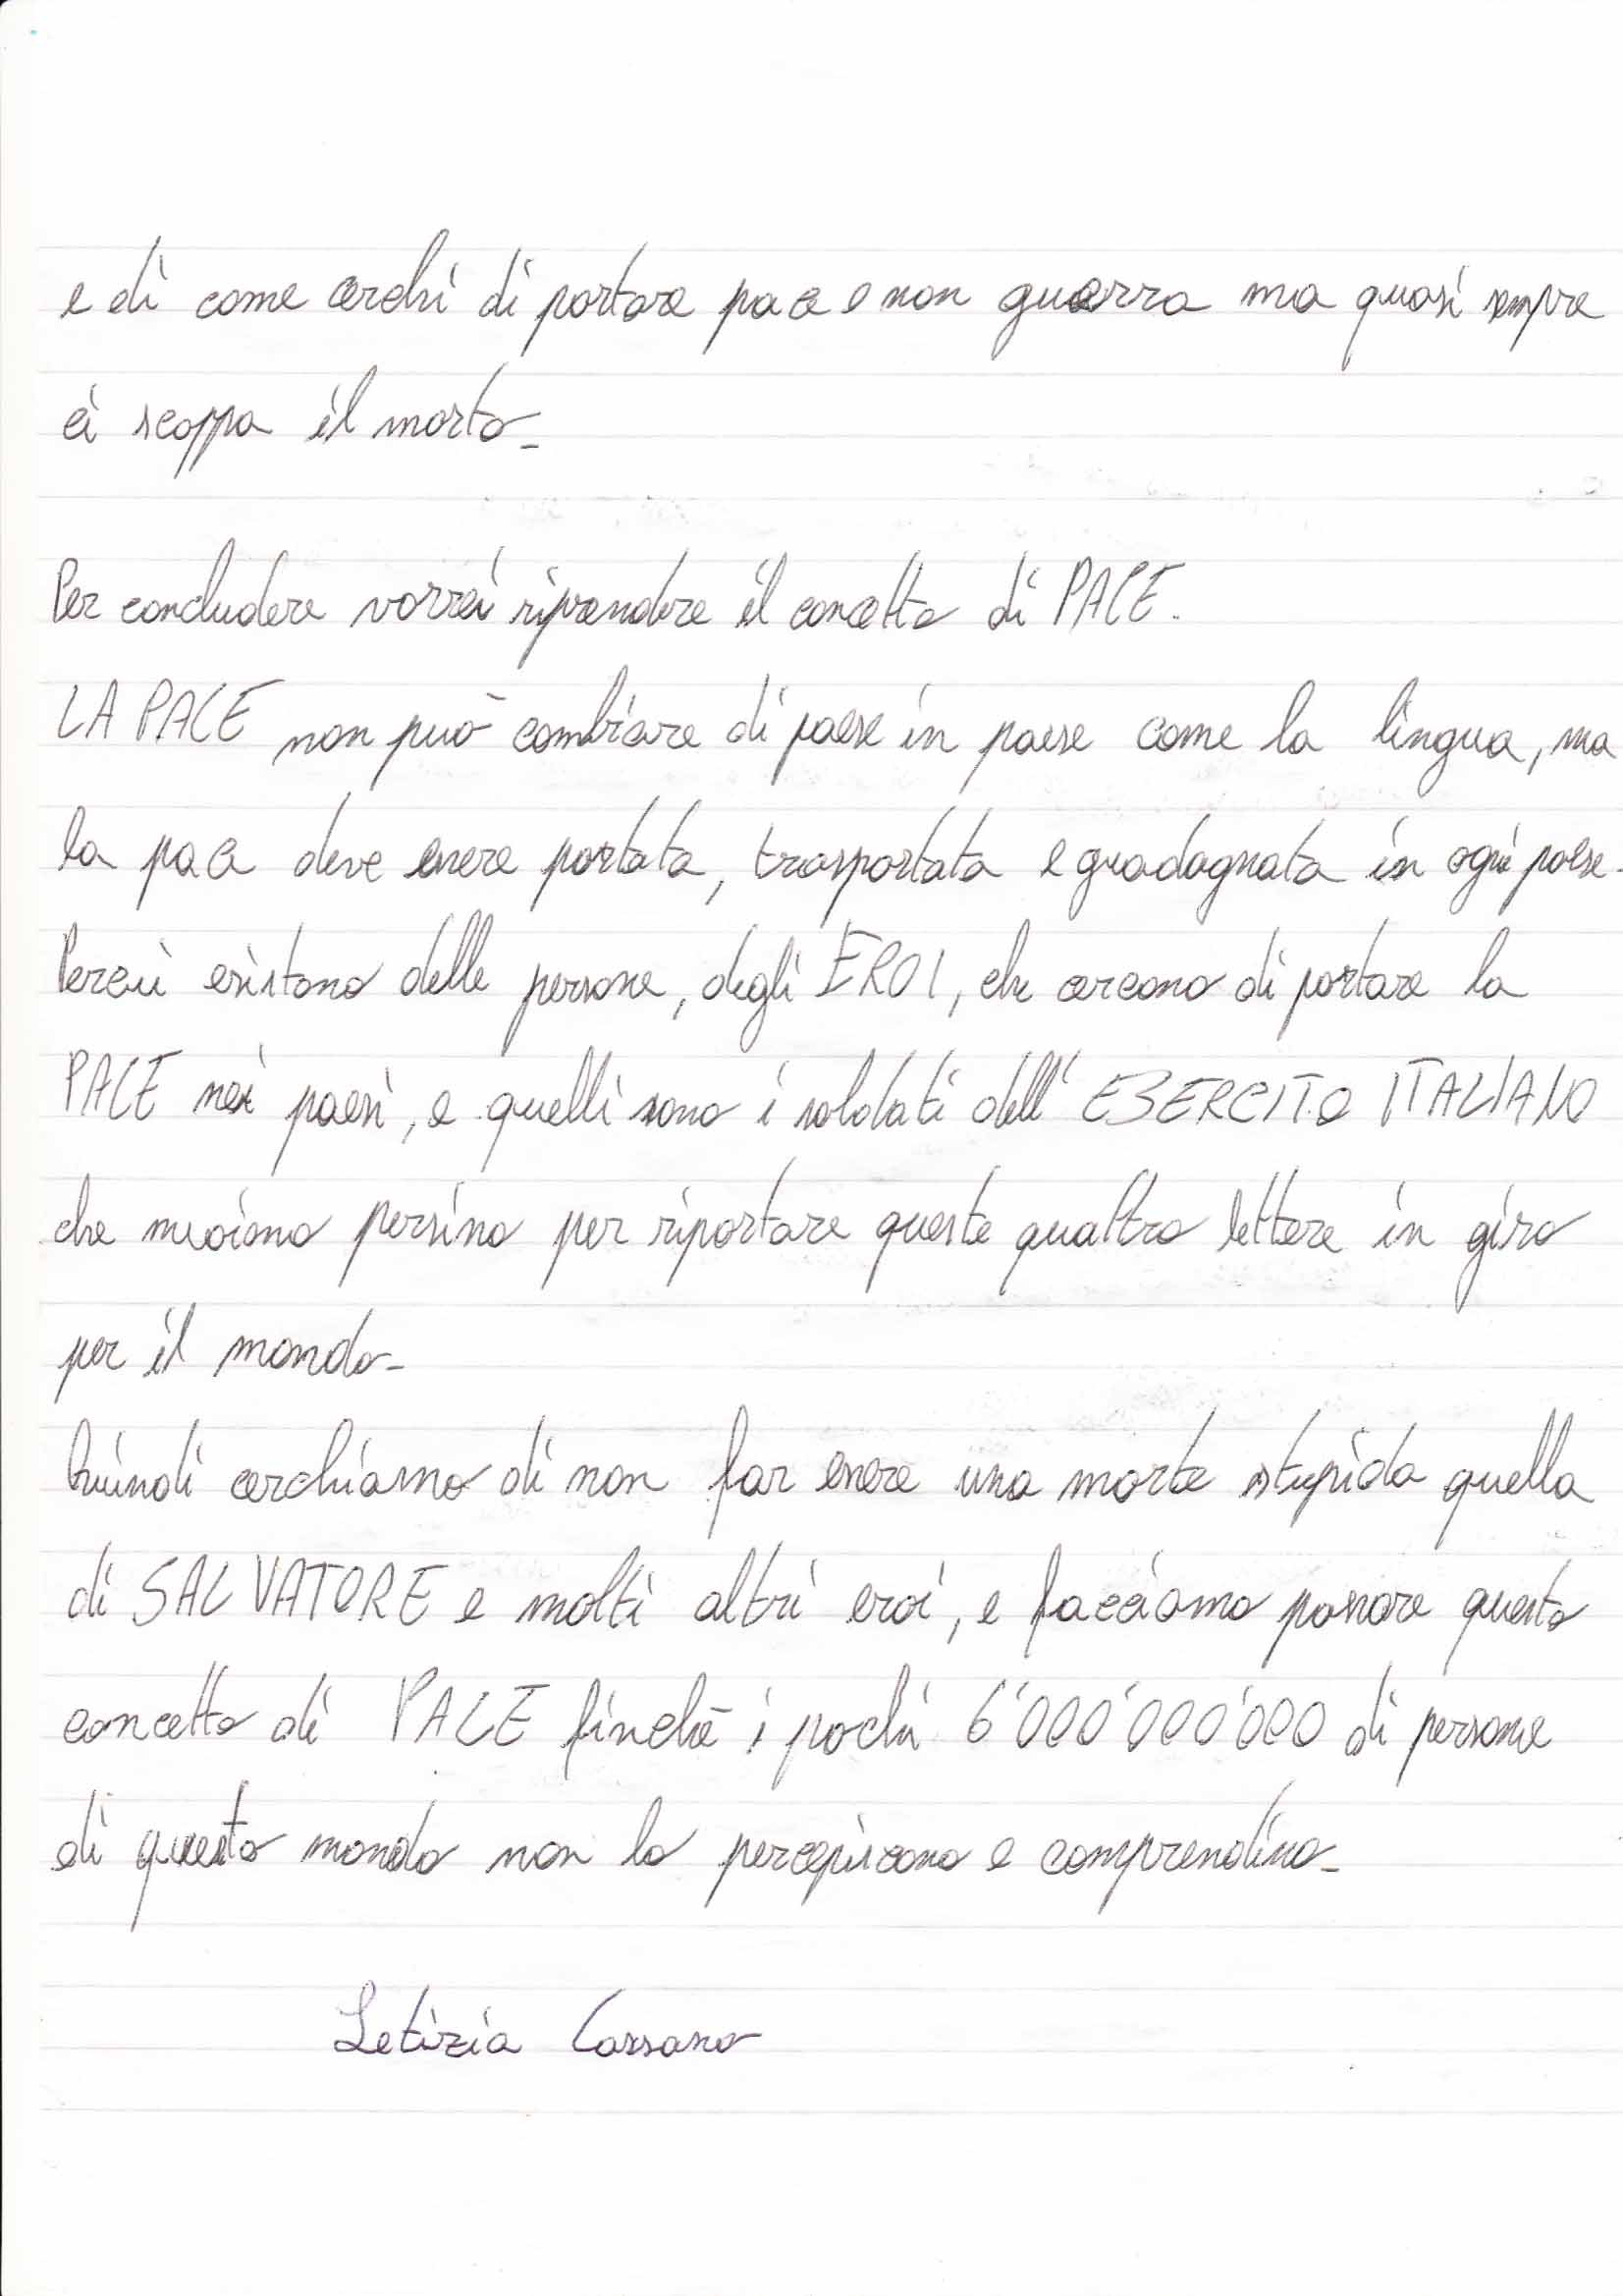 e di come cerchi di portare pace e non guerra ma quasi sempre
ci scappa il morto.
Per concludere vorrei riprendere il concetto di PACE.
LA PACE non può cambiare di paese in paese come la lingua, ma
la pace deve essere portata, trasportata e guadagnata in ogni paese.
Percui esistono delle persone, degli EROI, che cercano di portare la
PACE nei paesi, e quelli sono i soldati dell'ESERCITO ITALIANO
che muoiono persino per riportare queste quattro lettere in giro
per il mondo.
Quindi cerchiamo di non far essere una morte stupida quella
di SALVATORE e molti altri eroi, e facciamo passare questo
concetto di PACE finchè i pochi 6'000'000'000 di persone
di questo mondo non lo percepiscono e comprendino.
Letizia Cassano